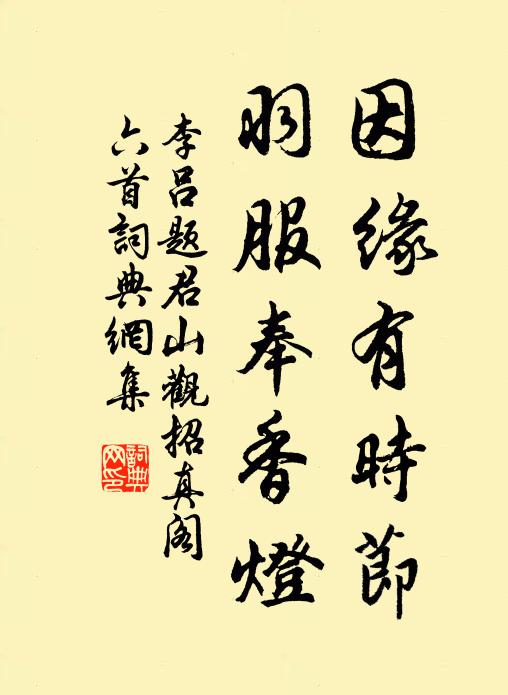 因缘有時節
羽服奉香燈
李吕题君山觀招真阁
六首詞典網集
詞典
网印